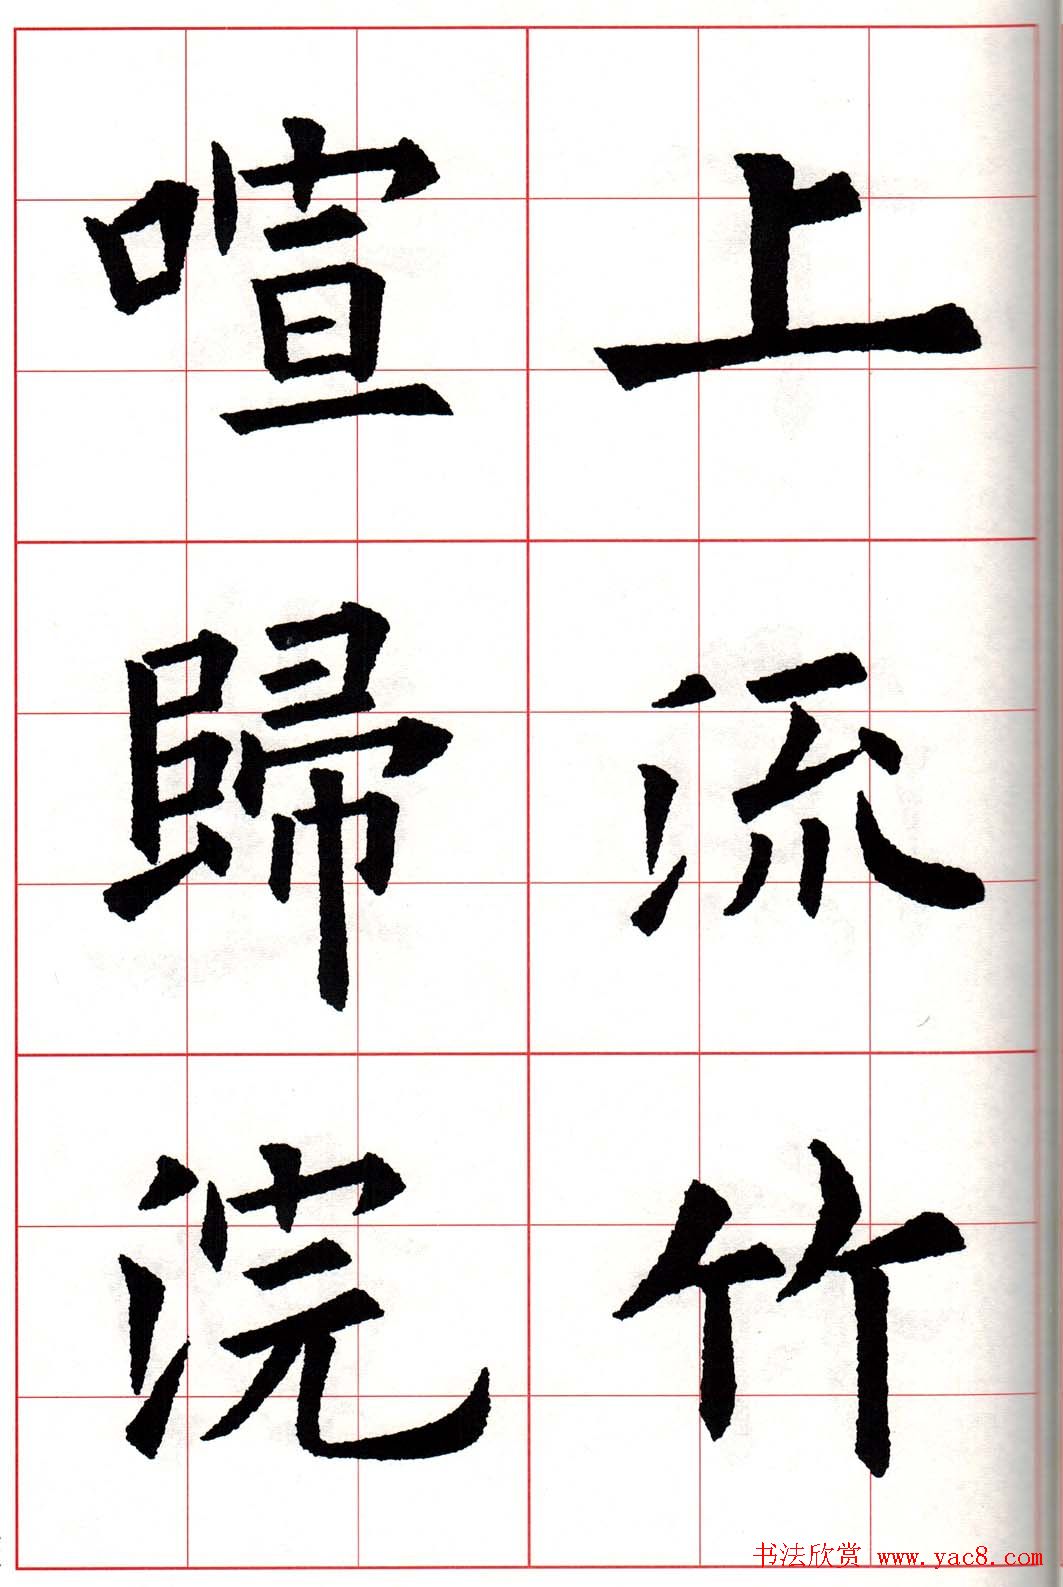 上流竹
喧歸浣
书法欣赏 www.yac8.com